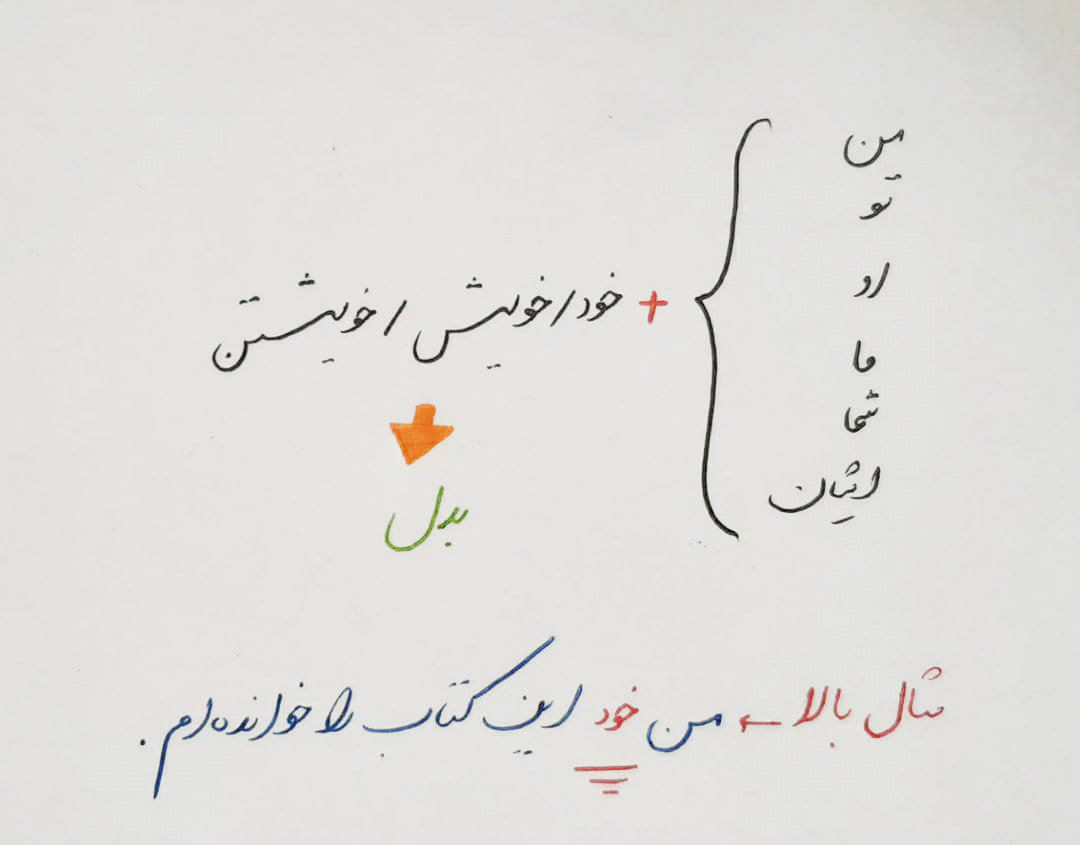 من
تو
او
ما
شما
ایشان
+ خود / خویش / خویشتن
بدل
مثال بالا ← من خود این کتاب را خوانده‌ام.